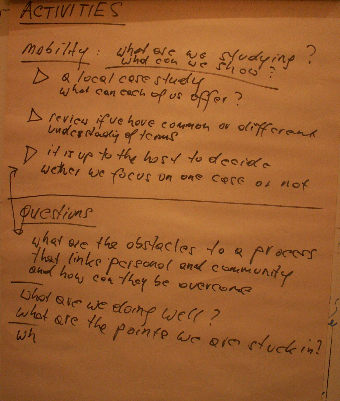 ACTIVITIES
mobility: what are we studying?
what can we show?
▷ a local case study
what can each of us offer?
▷ review if we have common or different
understandig of terms
▷ it is up to the host to decide
wether we focus on one case or not
Questions
what are the obstacles to a process
that links personal and community
and how can they be overcome
what are we doing well?
what are the points we are stuck in?
wh